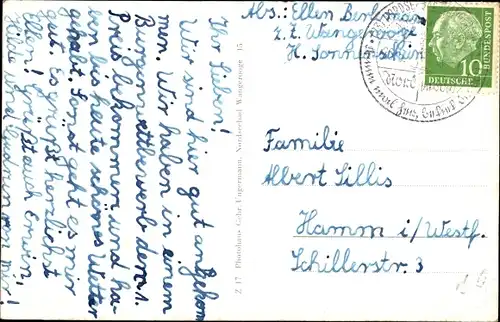 Abs.: Ellen Berkmann
z. Z. Wangerooge
H. Sonnenschein
DEUTSCHE BUNDESPOST
10
Ihr Lieben!
Wir sind hier gut angekom
men. Wir haben in einem
Burgenwettbewerb den 1.
Preis bekommen und ha-
ben bis heute schönes Wetter
gehabt. Sonst geht es mir
gut. Es grüsst herzlichst
Ellen! Grüsst auch Erwin,
Hilde und Gudrun von mir!
Z 17 Photohaus Gebr. Ungermann, Nordseebad Wangerooge 15
Familie
Albert Sillis
Hamm i/Westf.
Schillerstr. 3